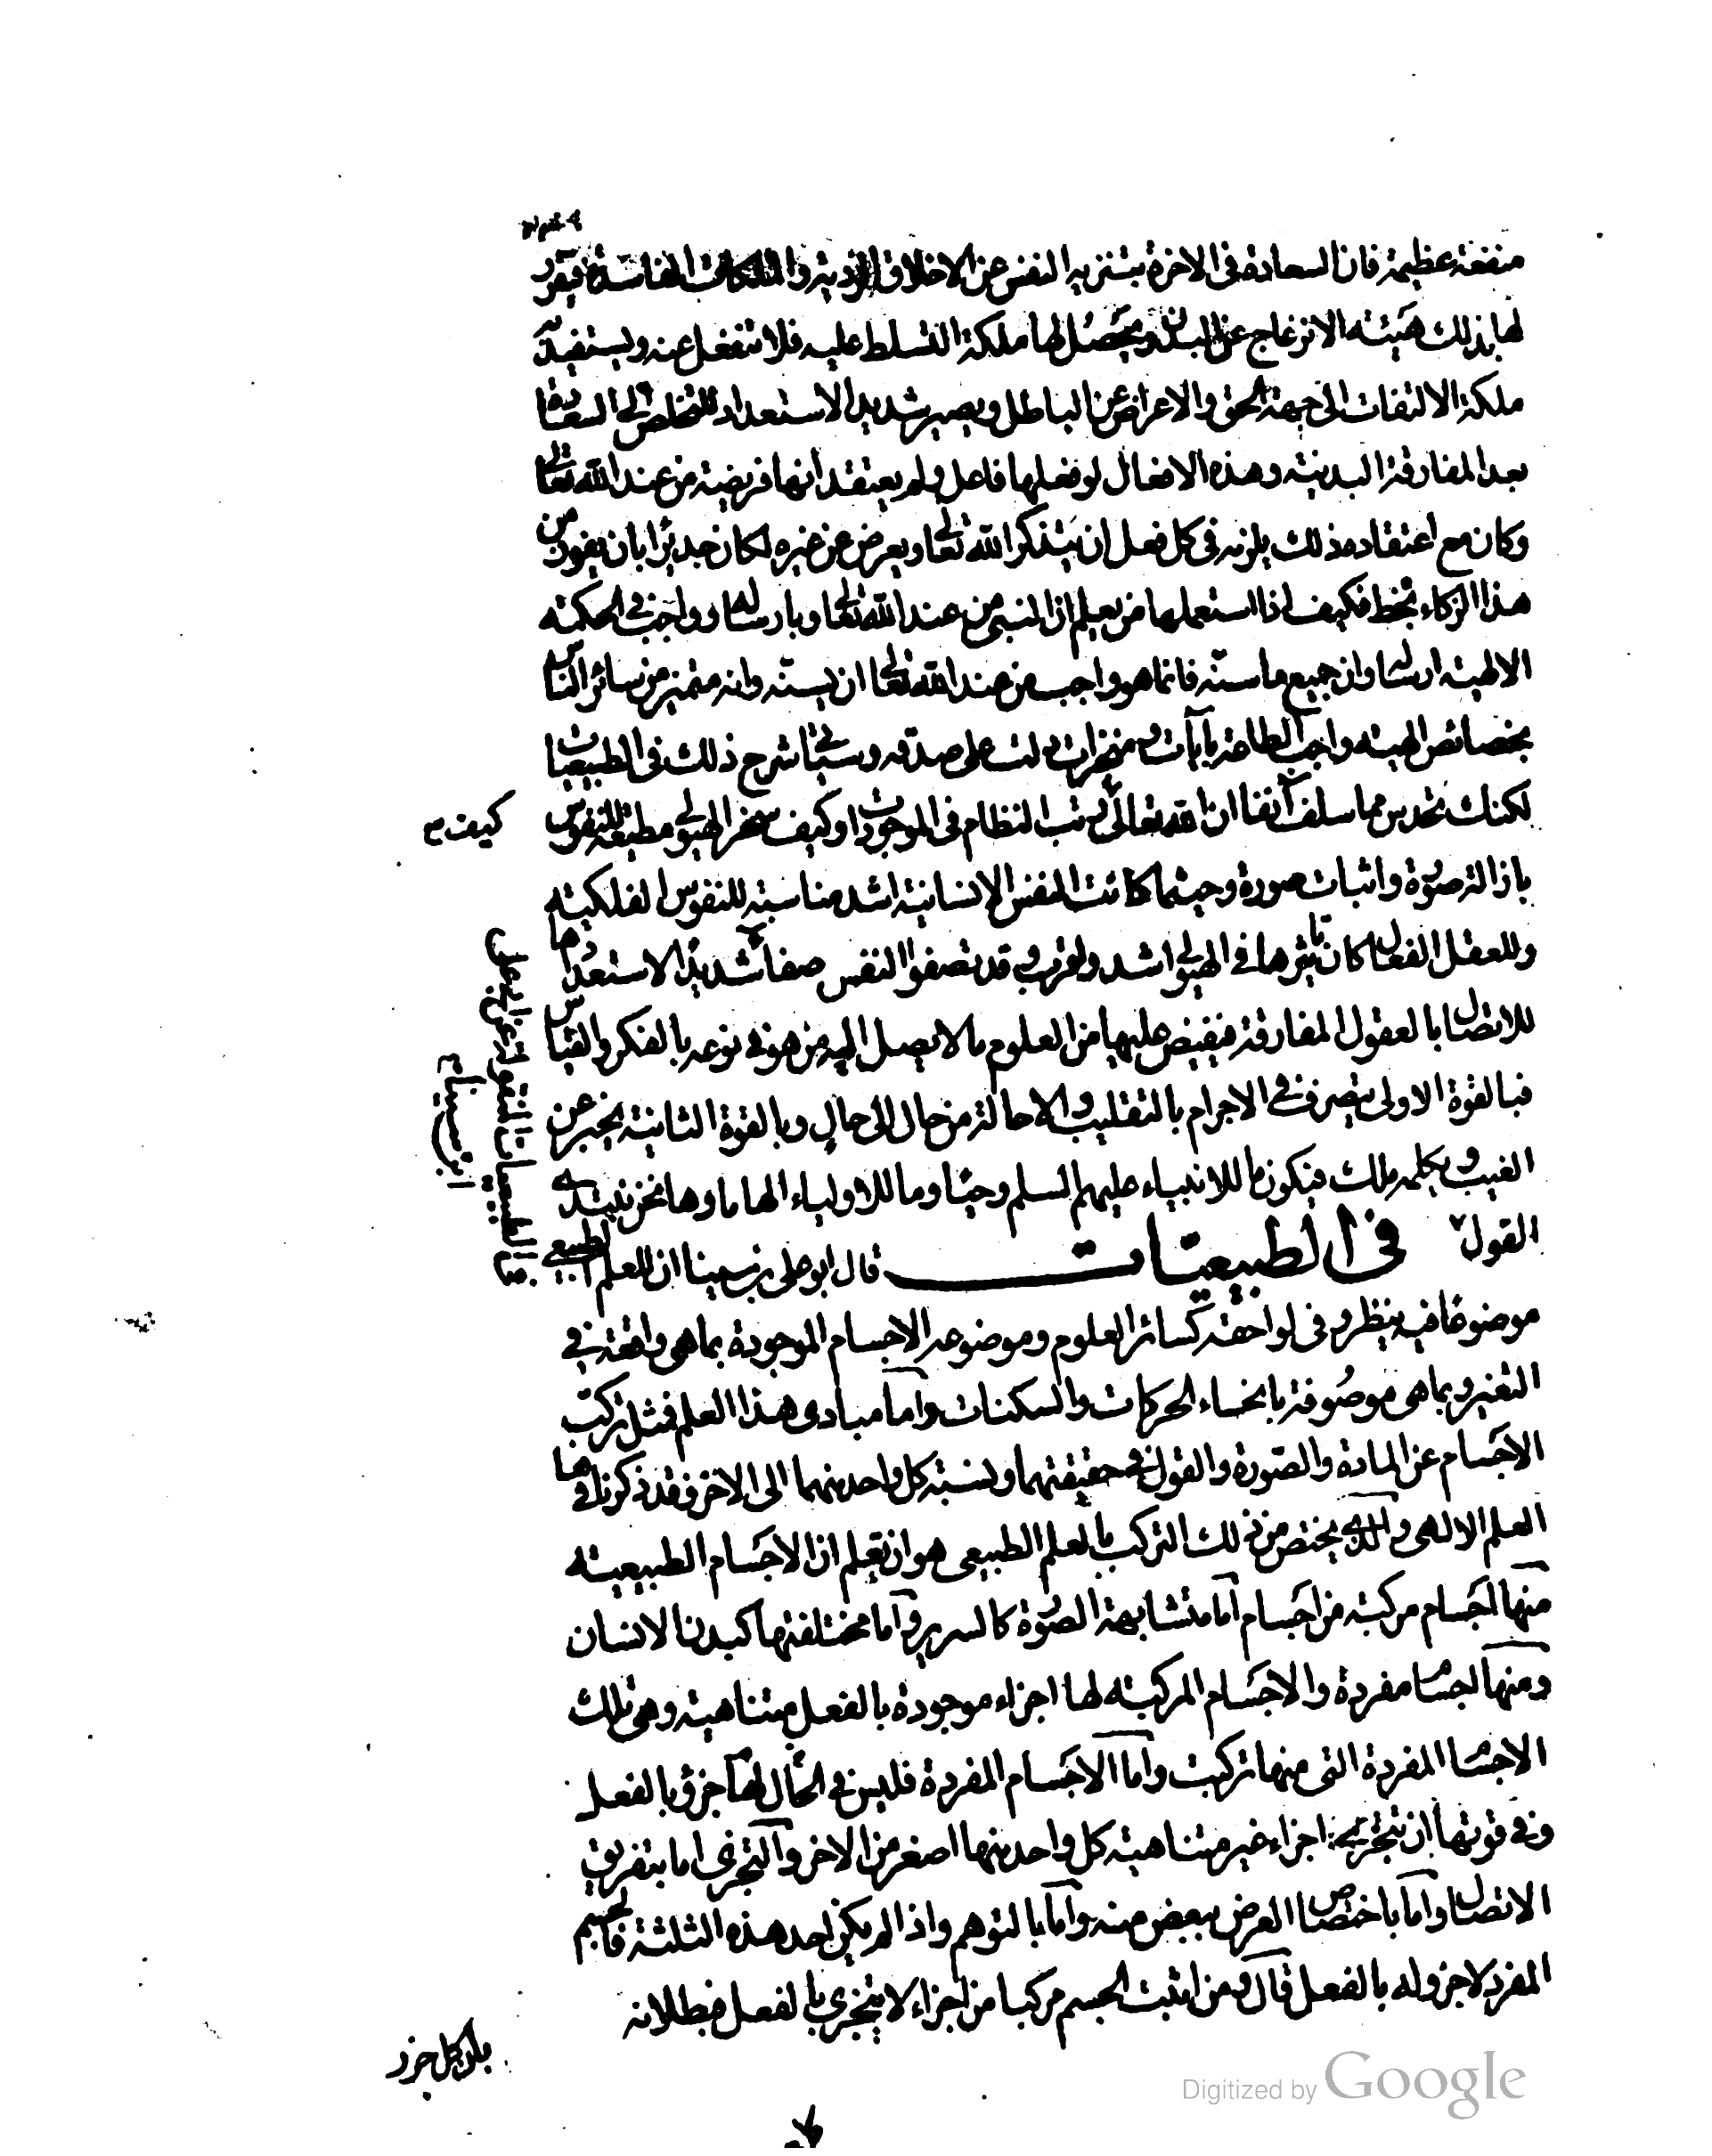 منفعة عظيمة فان السعادة فى الاخرة بتنزيه النفس عن الاخلاق الردية والملكات الفاسدة فيتقرر
لها بذلك هيئة الانزعاج عن البدن ويحصل لها ملكة التسلط عليه فلا تنفعل عنه ويستفيد به
ملكة الالتفات الى جهة الحق والاعراض عن الباطل ويصير شديد الاستعداد للتخلص الى السعادة
بعد المفارقة البدنية وهذه الافعال لو فعلها فاعل ولم يعتقد انها فريضة من عند الله تعالى
وكان مع اعتقاده ذلك يلزمه فى كل فعل ان يتذكر الله تعالى ويعرض عن غيره لكان جديرا بان يفوز من
هذا الزكاء بحظ فكيف اذا استعملها من يعلم ان النبى من عند الله تعالى وبارساله وواجب فى الحكمة
الالهية ارساله وان جميع ما سنه فانما هو واجب من عند الله تعالى ان يسنه وانه متميز من سائر الناس
بخصائص الهية واجب الطاعة بآيات ومعجزات دلت على صدقه وسيأتى شرح ذلك فى الطبيعيات
لكنك تحدس مما سلف آنفا ان الله تعالى كيف رتب النظام فى الموجودات وكيف سخر الهيولى مطيعة للنفوس
كيف
بازالة صورة واثبات صورة وحيثما كانت النفس الانسانية اشد مناسبة للنفوس الفلكية
وللعقل الفعال كان تاثيرها فى الهيولى اشد واغرب وقد تصفوا النفس صفاء شديد الاستعدادها
للاتصال بالعقول المفارقة فيفيض عليها من العلوم ما لا يصل اليه من هو فى نوعه بالفكر والقياس
فبالقوة الاولى يتصرف فى الاجرام بالتقليب والاحالة من حال الى حال وبالقوة الثانية يخبر عن
الغيب ويكلمه ملك فيكون ما للانبياء عليهم السلم وحيا وما للاولياء الهاما وها نحن نبتدى
القول فى الطبيعيات قال ابو على بن سينا ان للعلم الطبيعى
موضوعا فيه ينظر وفى لواحقه كسائر العلوم وموضوعه الاجسام الموجودة بما هى واقعة فى
التغير وبما هى موصوفة بانحاء الحركات والسكنات واما مبادى هذا العلم فمثل تركب
الاجسام عن المادة والصورة والقول فى حقيقتهما ونسبة كل واحد منهما الى الاخر فقد ذكرناها فى
العلم الالهى والذى يختص من ذلك التركب بالعلم الطبيعى هو ان تعلم ان الاجسام الطبيعية
منها اجسام مركبة من اجسام اما متشابهة الصورة كالسرير واما مختلفتها كبدن الانسان
ومنها اجسام مفردة والاجسام المركبة لها اجزاء موجودة بالفعل متناهية وهى تلك
الاجسام المفردة التى منها تركبت واما الاجسام المفردة فليس فى الحال لها جزؤ بالفعل
وفى قوتها ان تتجزى اجزاء غير متناهية كل واحد منها اصغر من الاخر والتجزى اما بتفريق
الاتصال واما باختصاص العرض ببعض منه واما بالتوهم واذا لم يكن احد هذه الثلثة فالجسم
المفرد لا جزو له بالفعل قال ومن اثبت الجسم مركبا من اجزاء لا يتجزى بالفعل فبطلانه
بان كل جزء
ابن سينا